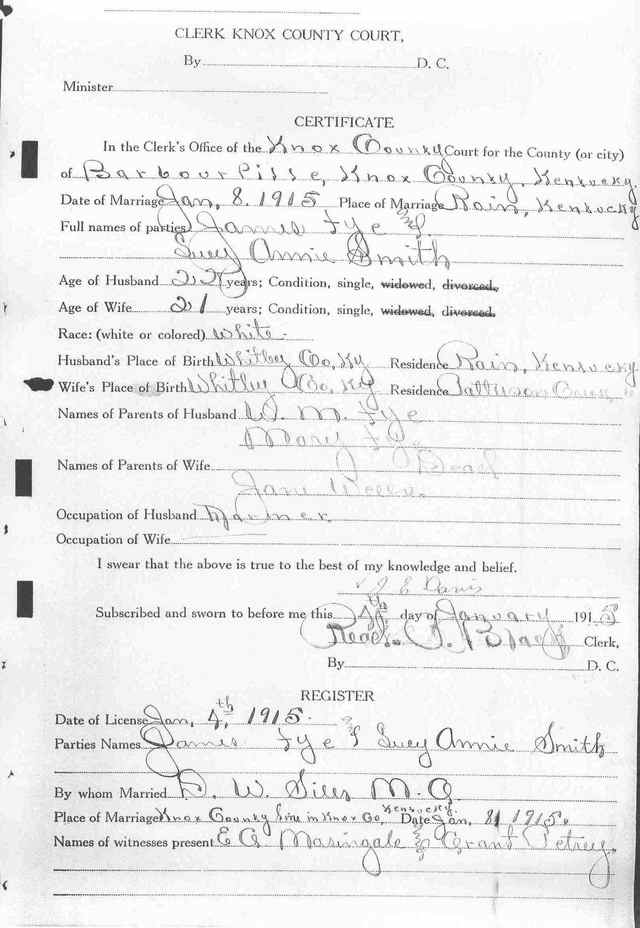 CLERK KNOX COUNTY COURT,
By D. C.
Minister
CERTIFICATE
In the Clerk's Office of the Knox County Court for the County (or city)
of Barbourville, Knox County, Kentucky
Date of Marriage Jan, 8. 1915 Place of Marriage Rain, Kentucky
Full names of parties James Fye and
Lucy Annie Smith
Age of Husband 22 years; Condition, single, widowed, divorced,
Age of Wife 21 years; Condition, single, widowed, divorced.
Race: (white or colored) white
Husband's Place of Birth Whitley Co, Ky Residence Rain, Kentucky
Wife's Place of Birth Whitley Co, Ky Residence Patterson Creek
Names of Parents of Husband W. M. Fye
Mary Fye
Names of Parents of Wife Dead
Jane
Occupation of Husband Farmer
Occupation of Wife
I swear that the above is true to the best of my knowledge and belief.
Davis
Subscribed and sworn to before me this 4th day of January 1915
Read P. Black Clerk,
By D. C.
REGISTER
Date of License Jan, 4th, 1915.
Parties Names James Fye & Lucy Annie Smith
By whom Married D. W. Siler M. G.
Place of Marriage Knox County line in Knox Co, Kentucky. Date Jan, 8, 1915.
Names of witnesses present E G Masingale & Grant Petrey.